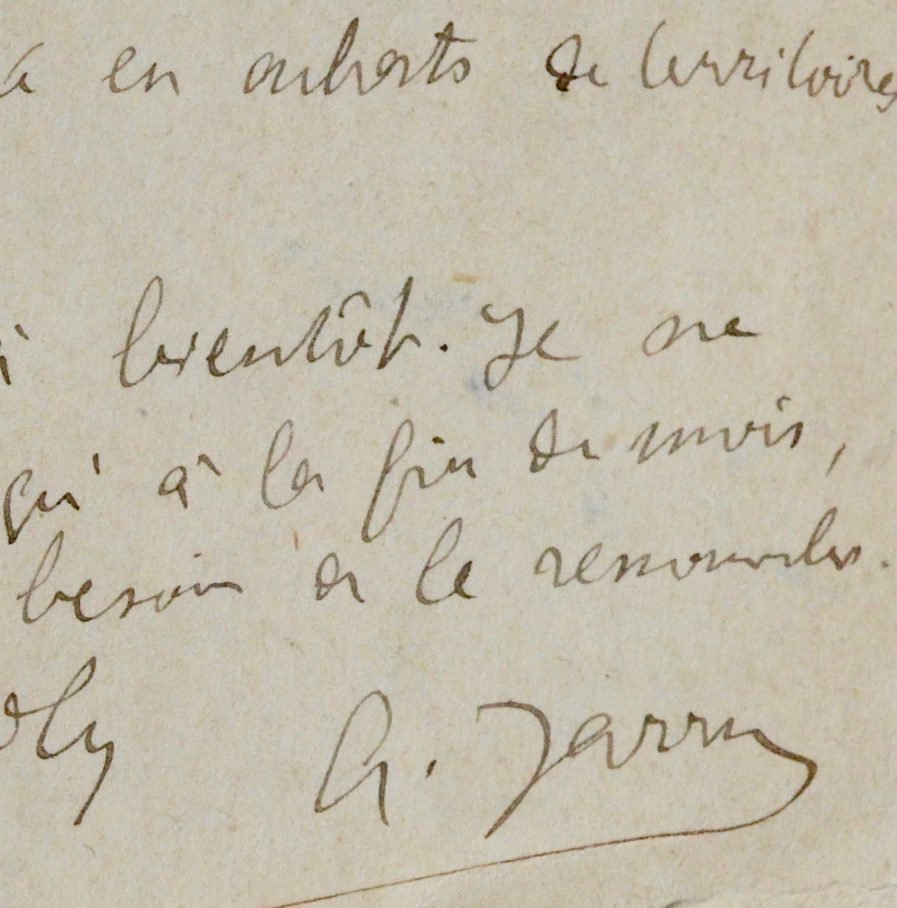 en achats de territoires
à bientôt. Je ne
qu'à la fin du mois,
besoin de le renouveler.
A. Jarry